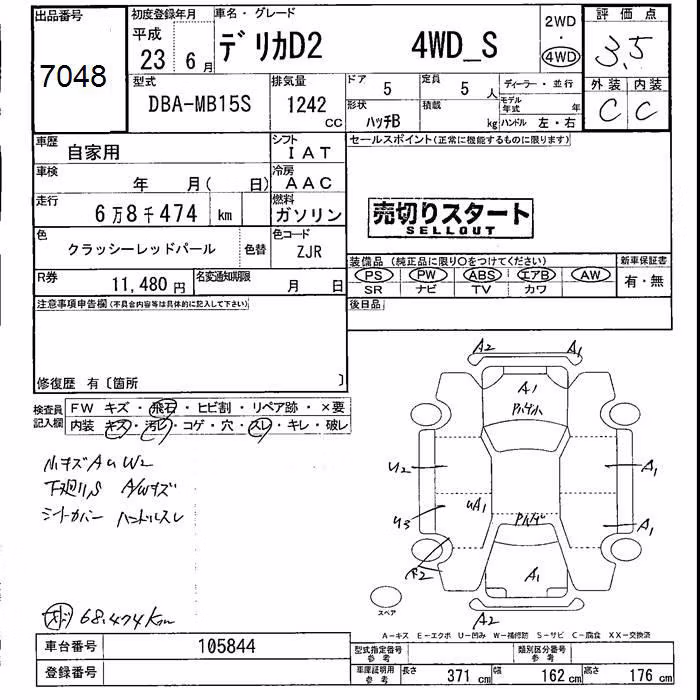 出品番号
7048
初度登録年月
平成
23 6月
車名・グレード
デリカD2 4WD_S
2WD
・
4WD
評価点
3.5
外装 内装
C C
型式
DBA-MB15S
排気量
1242 CC
ドア 5
定員 5 人
ディーラー・並行
形状 ハッチB
積載 kg
モデル年式 年
ハンドル 左・右
車歴 自家用
シフト IAT
セールスポイント(正常に機能するものに限ります)
車検 年 月( 日)
冷房 AAC
走行 6万8千474 km
燃料 ガソリン
売切りスタート
SELLOUT
色 クラッシーレッドパール 色替
色コード ZJR
装備品 (純正品に限り○をつけてください)
新車保証書
PS PW ABS エアB AW
有・無
SR ナビ TV カワ
R券 11,480円
名変通知期限 月 日
後日品
注意事項申告欄(不具合内容等は具体的に記入して下さい)
修復歴 有〔箇所 〕
検査員記入欄
FW キズ・飛石・ヒビ割・リペア跡・×要
内装 キズ・汚レ・コゲ・穴・スレ・キレ・破レ
小キズAUW2
下廻りS A/Wキズ
シートカバー ハンドルスレ
68,474Km
A2 A1
A1
U2 A1
UA1
U3 A1
A2
A1
A2
スペア
A-キズ E-エクボ U-凹み W-補修跡 S-サビ C-腐食 XX-交換済
車台番号 105844
型式指定番号 参考
類別区分番号 参考
登録番号
車庫証明用 参考
長さ 371 cm 幅 162 cm 高さ 176 cm